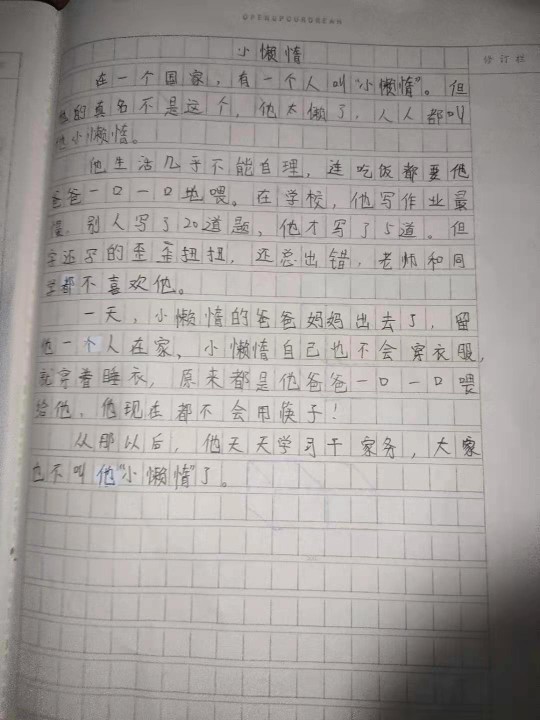 OPENUPYOURDREAM
修订栏
小懒惰
在一个国家，有一个人叫“小懒惰”。但
他的真名不是这个，他太懒了，人人都叫
他小懒惰。
他生活几乎不能自理，连吃饭都要他
爸爸一口一口地喂。在学校，他写作业最
慢，别人写了20道题，他才写了5道。但
字还写的歪歪扭扭，还总出错，老师和同
学都不喜欢他。
一天，小懒惰的爸爸妈妈出去了，留
他一个人在家、小懒惰自己也不会穿衣服，
就穿着睡衣，原来都是他爸爸一口一口喂
给他，他现在都不会用筷子！
从那以后，他天天学习干家务，大家
也不叫他“小懒惰”了。